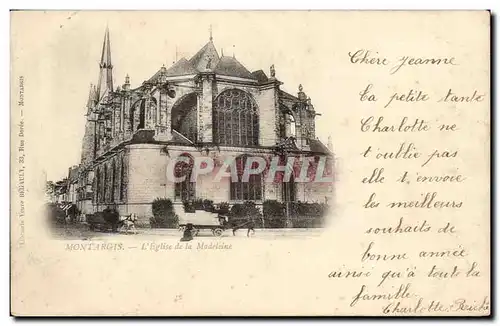 Chère Jeanne
Ta petite tante
Charlotte ne
t'oublie pas
elle t'envoie
les meilleurs
souhaits de
bonne année
ainsi qu'à toute la
famille
Charlotte
CPARAMA.COM
MONTARGIS. — L'Église de la Madeleine
Librairie Veuve BÉNAULT, 32, Rue Dorée. — MONTARGIS